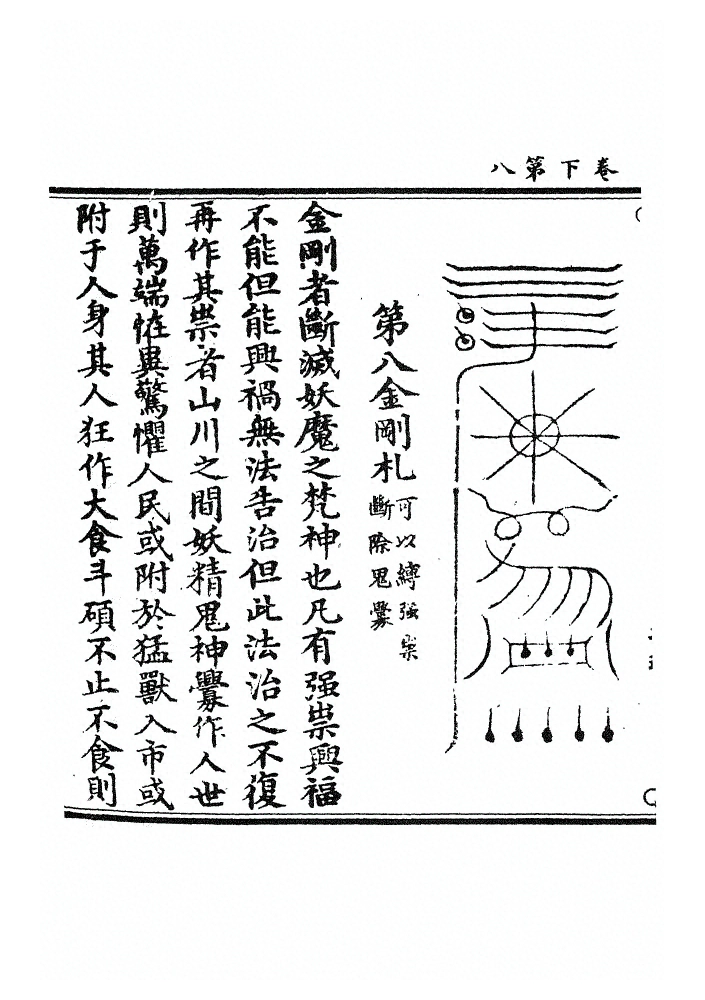 卷下第八
第八金剛札
可以縛强祟
斷除鬼㸑
金剛者斷滅妖魔之梵神也凡有强祟興福
不能但能興禍無法告治但此法治之不復
再作其祟者山川之間妖精鬼神㸑作人世
則萬端恠異驚懼人民或附於猛獸入市或
附于人身其人狂作大食斗碩不止不食則